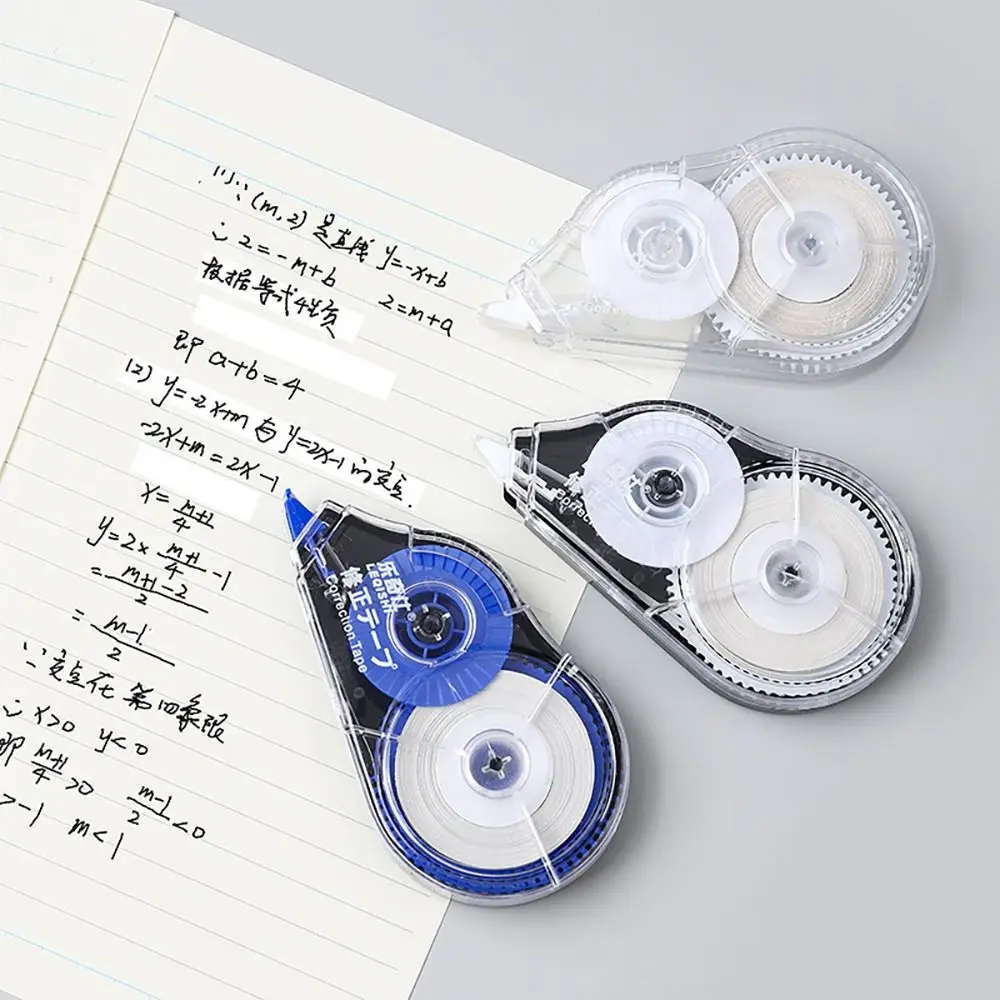 (1)∵(m,2)是直线 y=-x+b
∴2=-m+b 2=m+a
根据等式性质
即 a+b=4
(2) y=-2x+m与y=2x-1的交点
-2x+m=2x-1
x=\frac{m+1}{4}
y=2×\frac{m+1}{4}-1
=\frac{m+1-2}{2}
=\frac{m-1}{2}
∵交点在第四象限
∴x>0 y<0
即 \frac{m+1}{4}>0 \frac{m-1}{2}<0
>-1 m<1
乐奇仕®
LEQISHI
修正テープ
Correction Tape
Correction